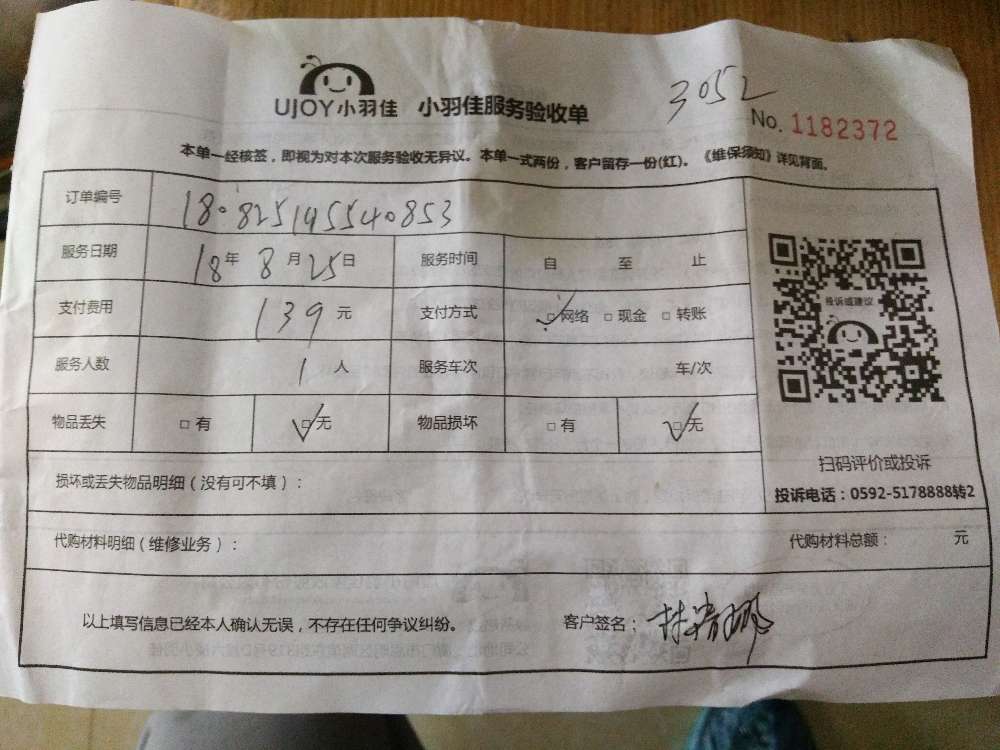 3052
UJOY小羽佳 小羽佳服务验收单
No. 1182372
本单一经核签，即视为对本次服务验收无异议。本单一式两份，客户留存一份(红)。《维保须知》详见背面。
订单编号 180825195540853
服务日期 18年 8月 25日 服务时间 自 至 止
支付费用 139 元 支付方式 ☑网络 □现金 □转账
投诉或建议
服务人数 1 人 服务车次 车/次
物品丢失 □有 ☑无 物品损坏 □有 ☑无
扫码评价或投诉
损坏或丢失物品明细（没有可不填）：
投诉电话：0592-5178888转2
代购材料明细（维修业务）： 代购材料总额： 元
以上填写信息已经本人确认无误，不存在任何争议纠纷。 客户签名：林